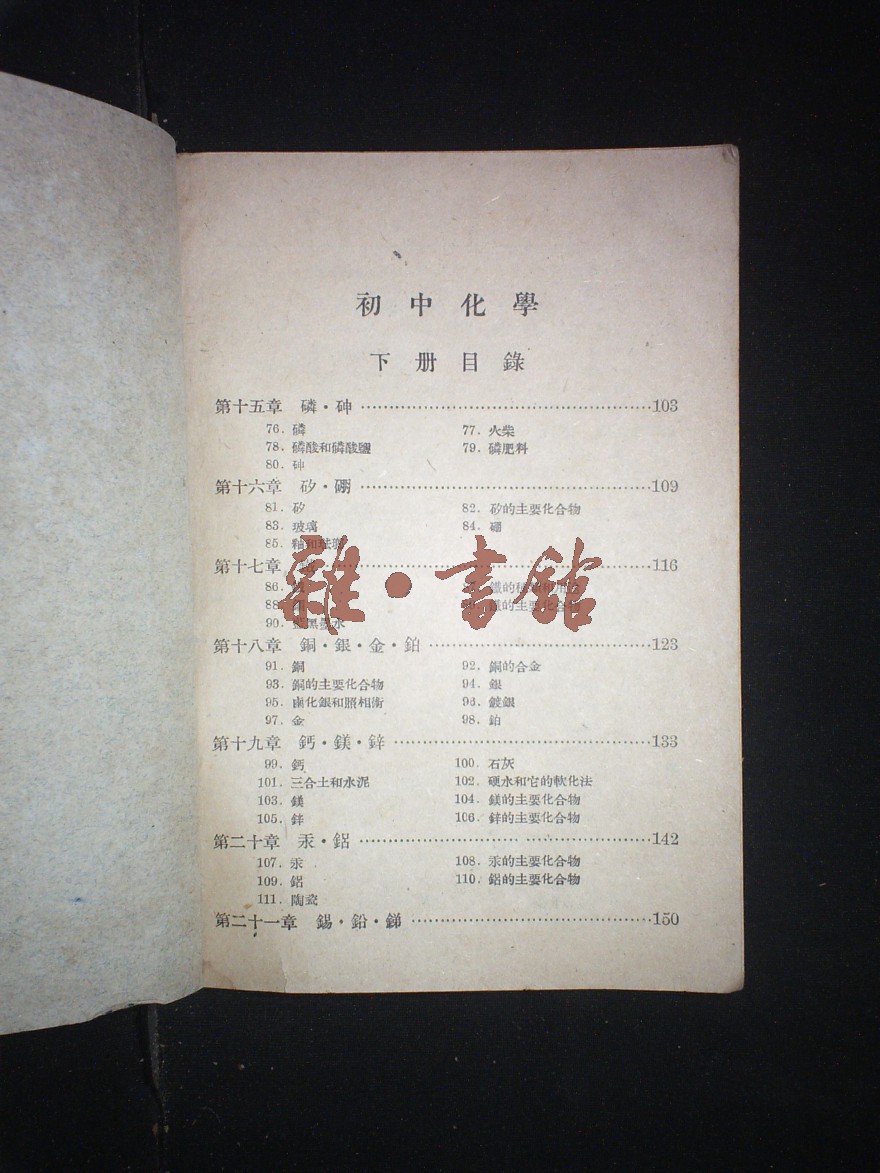 初中化學
下册目錄
第十五章 磷·砷 …… 103
76. 磷 77. 火柴
78. 磷酸和磷酸鹽 79. 磷肥料
80. 砷
第十六章 矽·硼 …… 109
81. 矽 82. 矽的主要化合物
83. 玻璃 84. 硼
85. 釉和琺瑯
第十七章 …… 116
86.
88. 鐵的主要化合物
90. 藍黑墨水
雜·書館
第十八章 銅·銀·金·鉑 …… 123
91. 銅 92. 銅的合金
93. 銅的主要化合物 94. 銀
95. 鹵化銀和照相術 96. 鍍銀
97. 金 98. 鉑
第十九章 鈣·鎂·鋅 …… 133
99. 鈣 100. 石灰
101. 三合土和水泥 102. 硬水和它的軟化法
103. 鎂 104. 鎂的主要化合物
105. 鋅 106. 鋅的主要化合物
第二十章 汞·鋁 …… 142
107. 汞 108. 汞的主要化合物
109. 鋁 110. 鋁的主要化合物
111. 陶瓷
第二十一章 錫·鉛·銻 …… 150